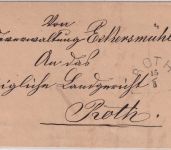 Von
verwaltung Eckersmühl
An das
igliche Landgericht
Roth.
ROTH
15